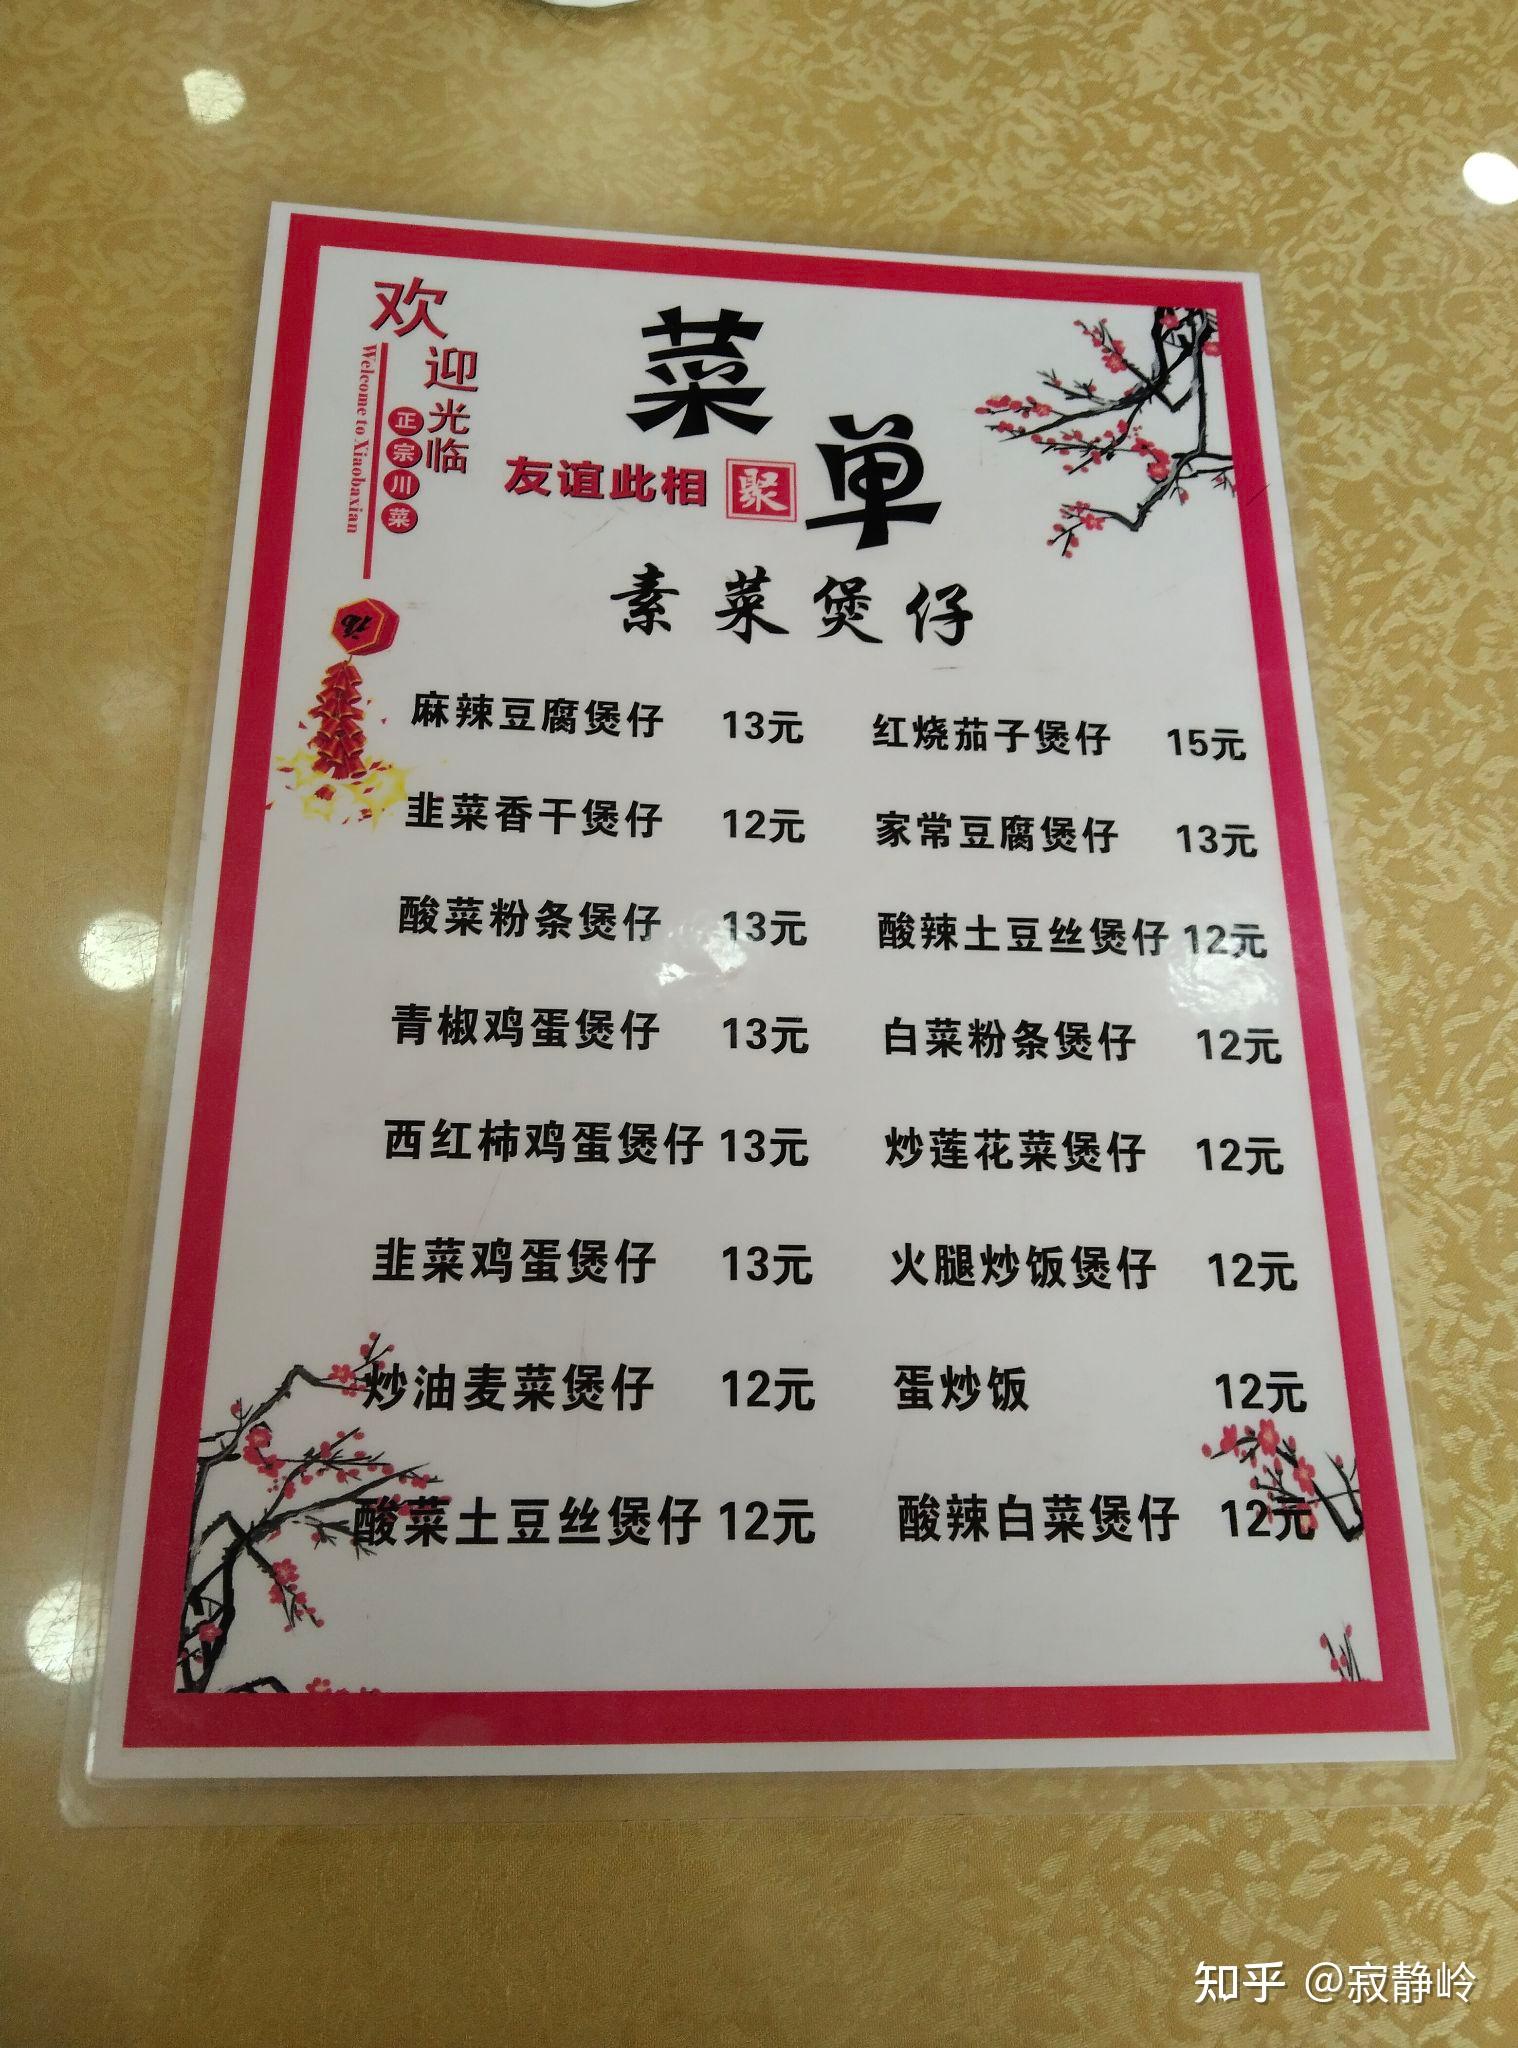 欢迎光临
Welcome to Xiaobaxian
正宗川菜
菜单
友谊此相聚
素菜煲仔
麻辣豆腐煲仔 13元 红烧茄子煲仔 15元
韭菜香干煲仔 12元 家常豆腐煲仔 13元
酸菜粉条煲仔 13元 酸辣土豆丝煲仔 12元
青椒鸡蛋煲仔 13元 白菜粉条煲仔 12元
西红柿鸡蛋煲仔 13元 炒莲花菜煲仔 12元
韭菜鸡蛋煲仔 13元 火腿炒饭煲仔 12元
炒油麦菜煲仔 12元 蛋炒饭 12元
酸菜土豆丝煲仔 12元 酸辣白菜煲仔 12元
知乎 @寂静岭